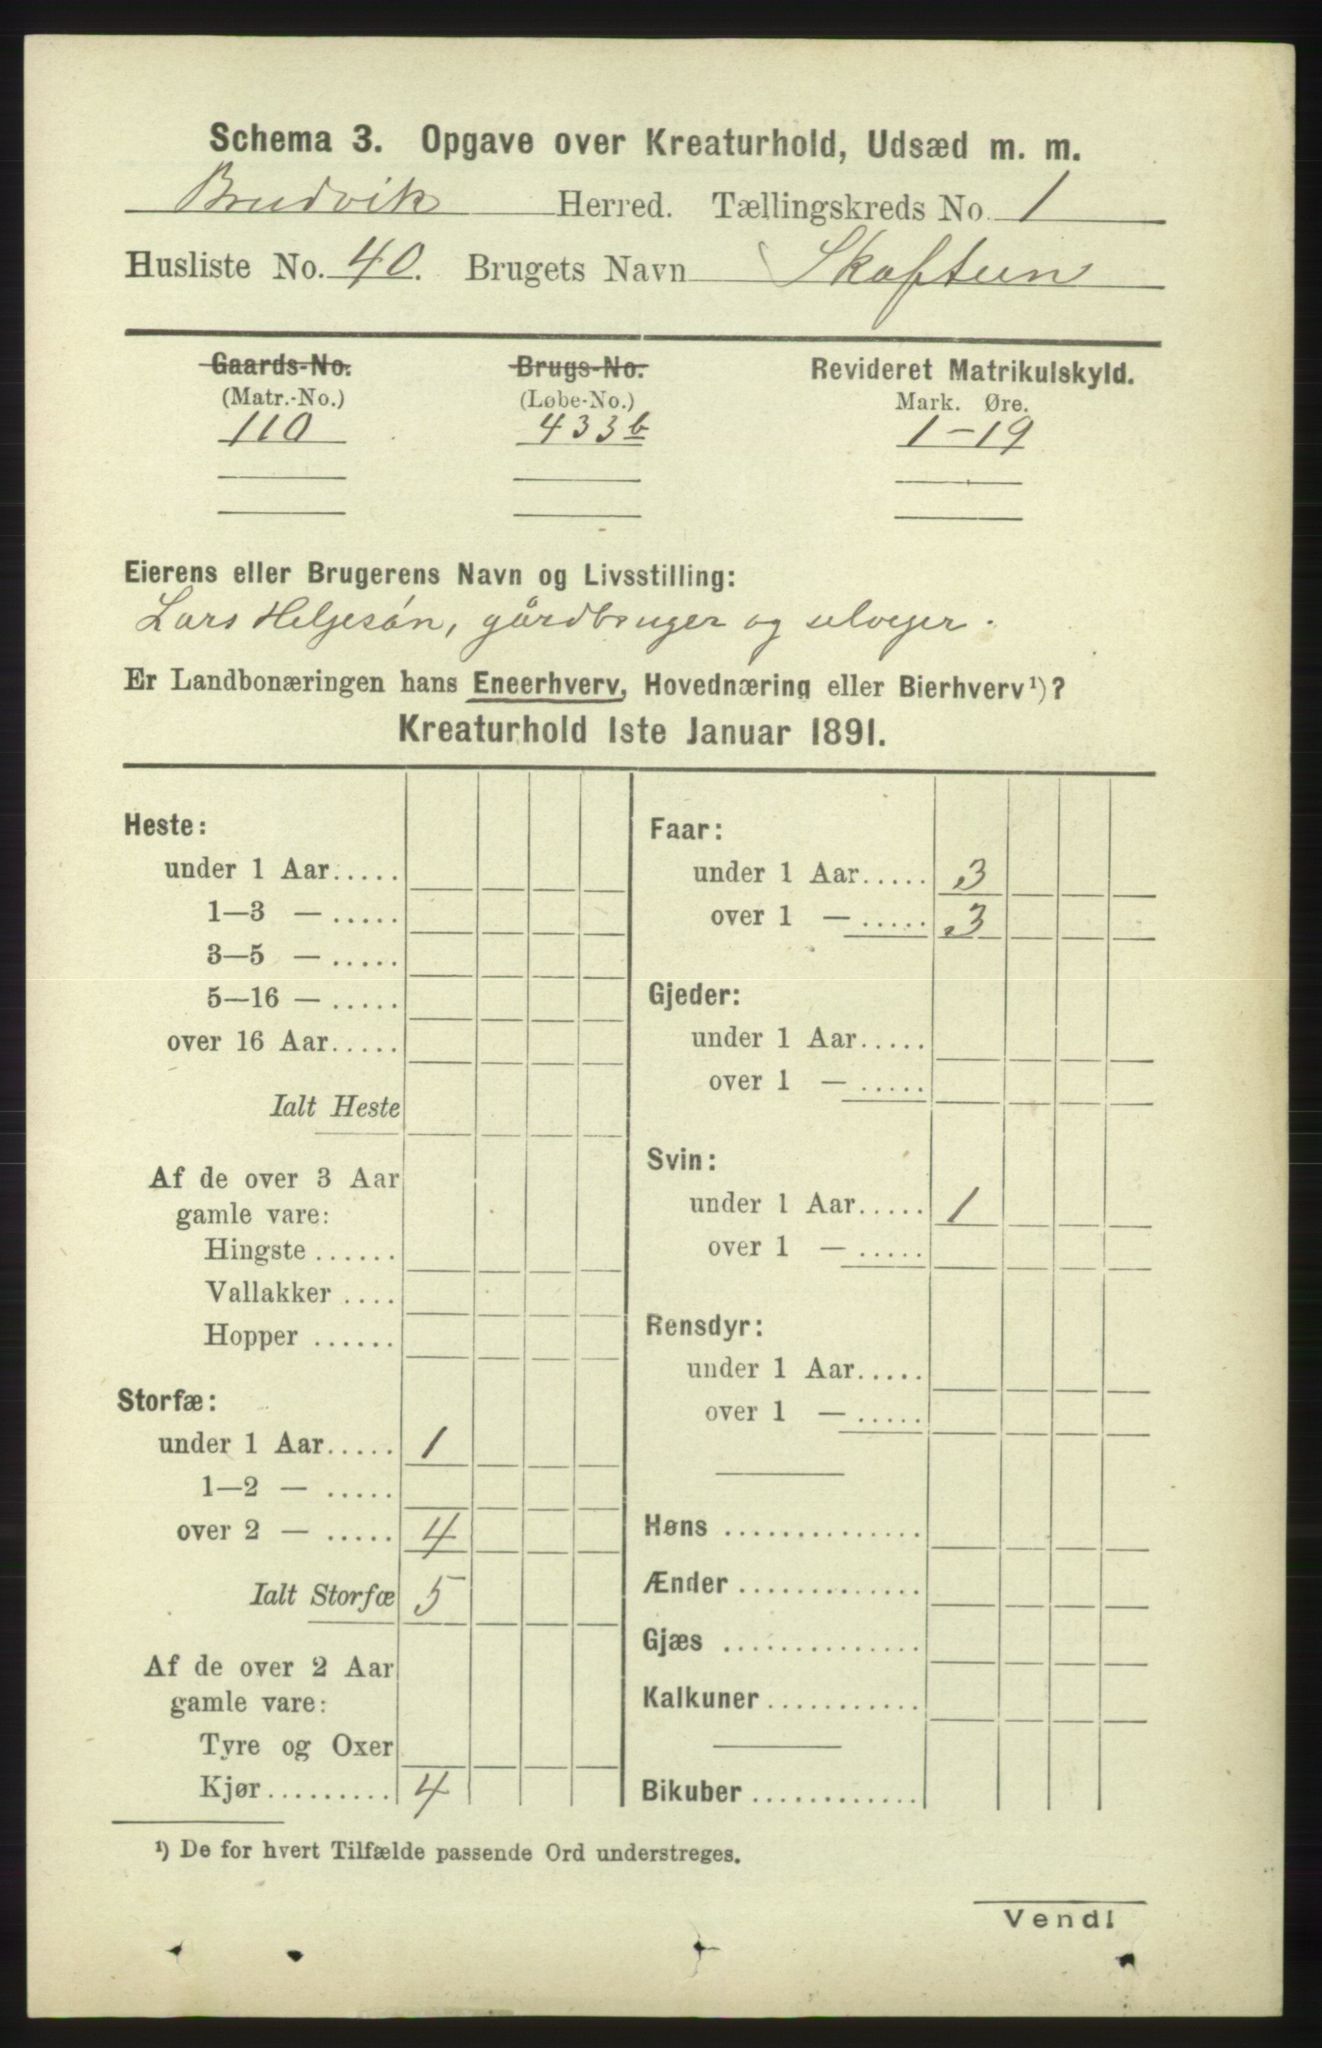 Schema 3. Opgave over Kreaturhold, Udsæd m. m.
Brudvik Herred. Tællingskreds No. 1
Husliste No. 40. Brugets Navn Skaftun
Gaards-No. Brugs-No. Revideret Matrikulskyld.
(Matr.-No.) (Løbe-No.) Mark. Øre.
110 433b 1-19
Eierens eller Brugerens Navn og Livsstilling:
Lars Helgesøn, gårdbruger og selvejer.
Er Landbonæringen hans Eneerhverv, Hovednæring eller Bierhverv¹)?
Kreaturhold 1ste Januar 1891.
Heste:
under 1 Aar.....
1—3 — .....
3—5 — .....
5—16 — .....
over 16 Aar.....
Ialt Heste
Af de over 3 Aar
gamle vare:
Hingste ......
Vallakker ....
Hopper ......
Storfæ:
under 1 Aar..... 1
1—2 — .....
over 2 — ..... 4
Ialt Storfæ 5
Af de over 2 Aar
gamle vare:
Tyre og Oxer
Kjør......... 4
Faar:
under 1 Aar..... 3
over 1 — ..... 3
Gjeder:
under 1 Aar.....
over 1 — .....
Svin:
under 1 Aar..... 1
over 1 — .....
Rensdyr:
under 1 Aar.....
over 1 — .....
Høns ..............
Ænder .............
Gjæs ..............
Kalkuner ...........
Bikuber ............
¹) De for hvert Tilfælde passende Ord understreges.
Vend!